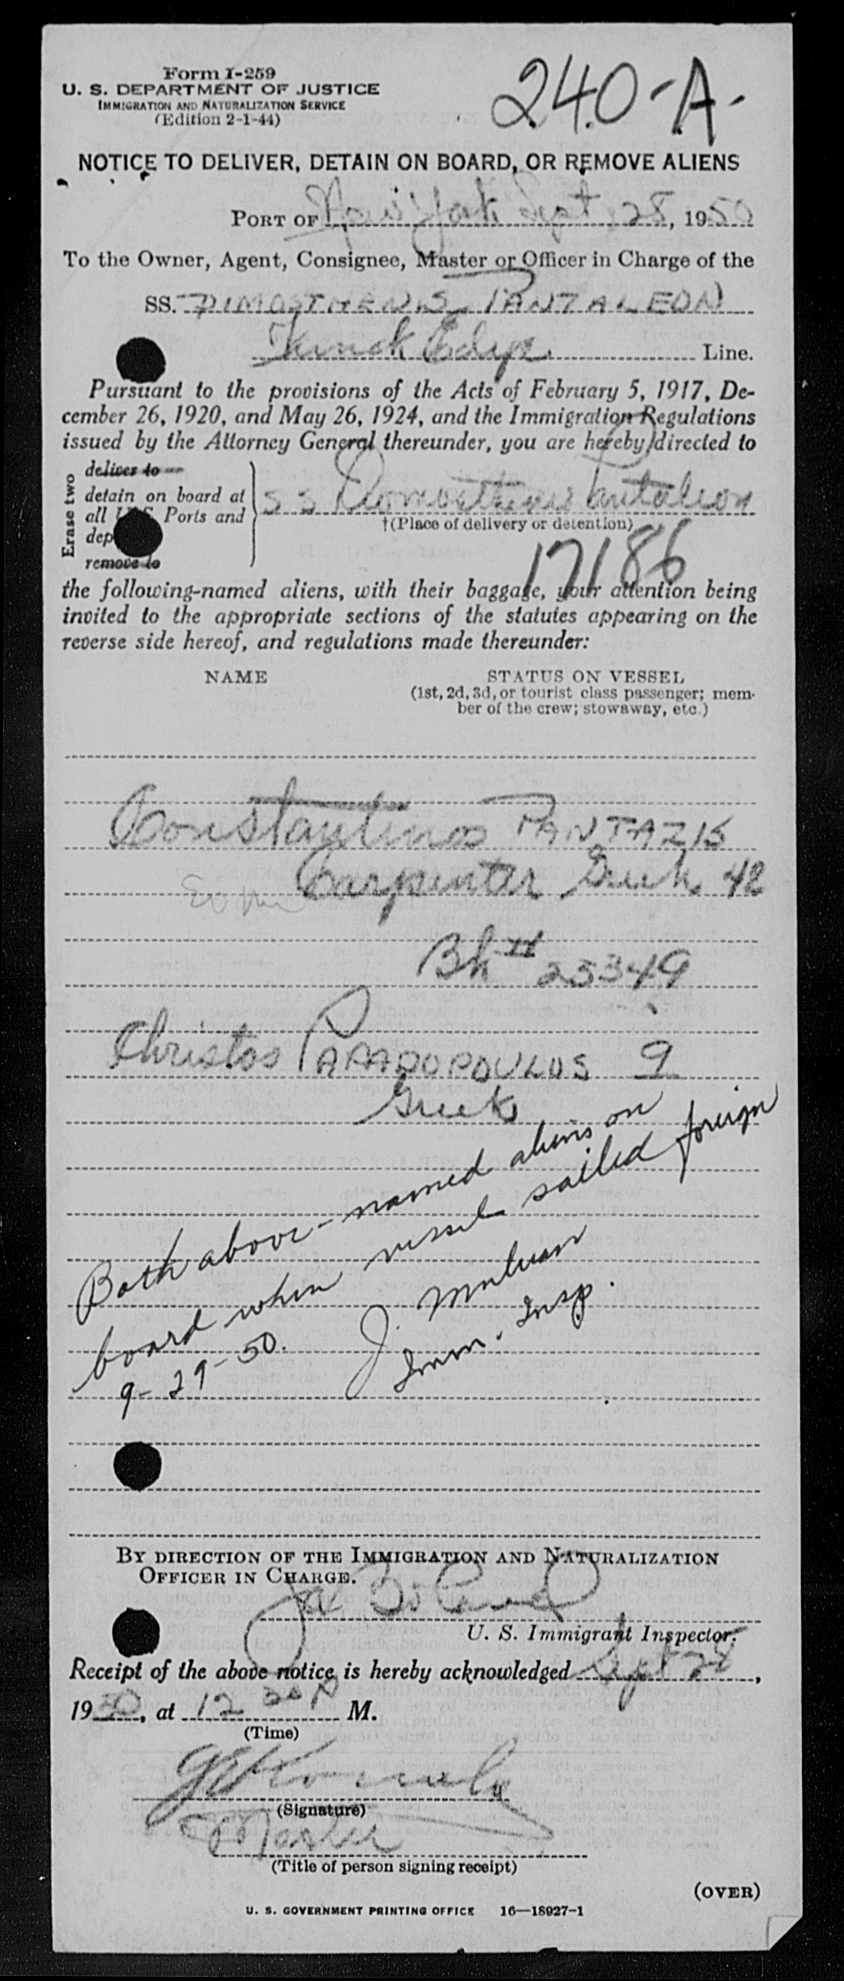 Form I-259
U. S. DEPARTMENT OF JUSTICE
IMMIGRATION AND NATURALIZATION SERVICE
(Edition 2-1-44)
240-A-
NOTICE TO DELIVER, DETAIN ON BOARD, OR REMOVE ALIENS
PORT OF New York Sept 28, 1950
To the Owner, Agent, Consignee, Master or Officer in Charge of the
SS. DIMOSTHENIS PANTALEON
Funch Edye Line.
Pursuant to the provisions of the Acts of February 5, 1917, De-
cember 26, 1920, and May 26, 1924, and the Immigration Regulations
issued by the Attorney General thereunder, you are hereby directed to
Erase two
deliver to
detain on board at
all U.S. Ports and
dep
remove to
SS Pantaleon
†(Place of delivery or detention)
17186
the following-named aliens, with their baggage, your attention being
invited to the appropriate sections of the statutes appearing on the
reverse side hereof, and regulations made thereunder:
NAME STATUS ON VESSEL
(1st, 2d, 3d, or tourist class passenger; mem-
ber of the crew; stowaway, etc.)
Constantinos PANTAZIS
Carpenter Greek 42
Bk # 25349
Christos PAPADOPOULOS 9
Greek
Both above-named aliens on
board when vessel sailed foreign
9-29-50. J.
Imm. Insp.
BY DIRECTION OF THE IMMIGRATION AND NATURALIZATION
OFFICER IN CHARGE.
U. S. Immigrant Inspector.
Receipt of the above notice is hereby acknowledged Sept 28,
1950, at 12 30 P M.
(Time)
(Signature)
Master
(Title of person signing receipt)
(OVER)
U. S. GOVERNMENT PRINTING OFFICE 16—18927-1